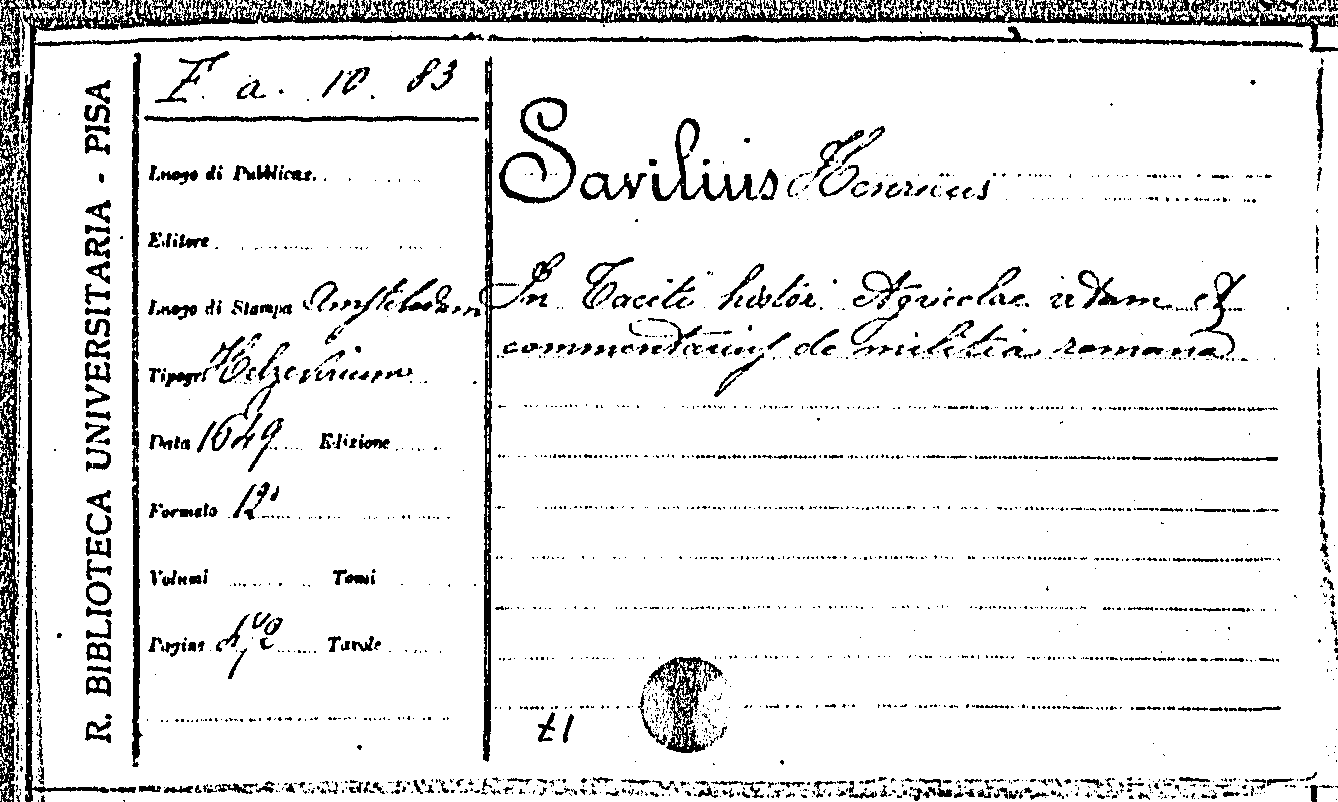 R. BIBLIOTECA UNIVERSITARIA - PISA
F. a. 10. 83
Luogo di Pubblicaz.
Editore
Luogo di Stampa Amstelodam
Tipogr.
Data 1649 Edizione
Formato 12°
Volumi Tomi
Pagine Tavole
Savilius Henricus
In Taciti histor. Agricolae vitam et
commentarius de militia romana